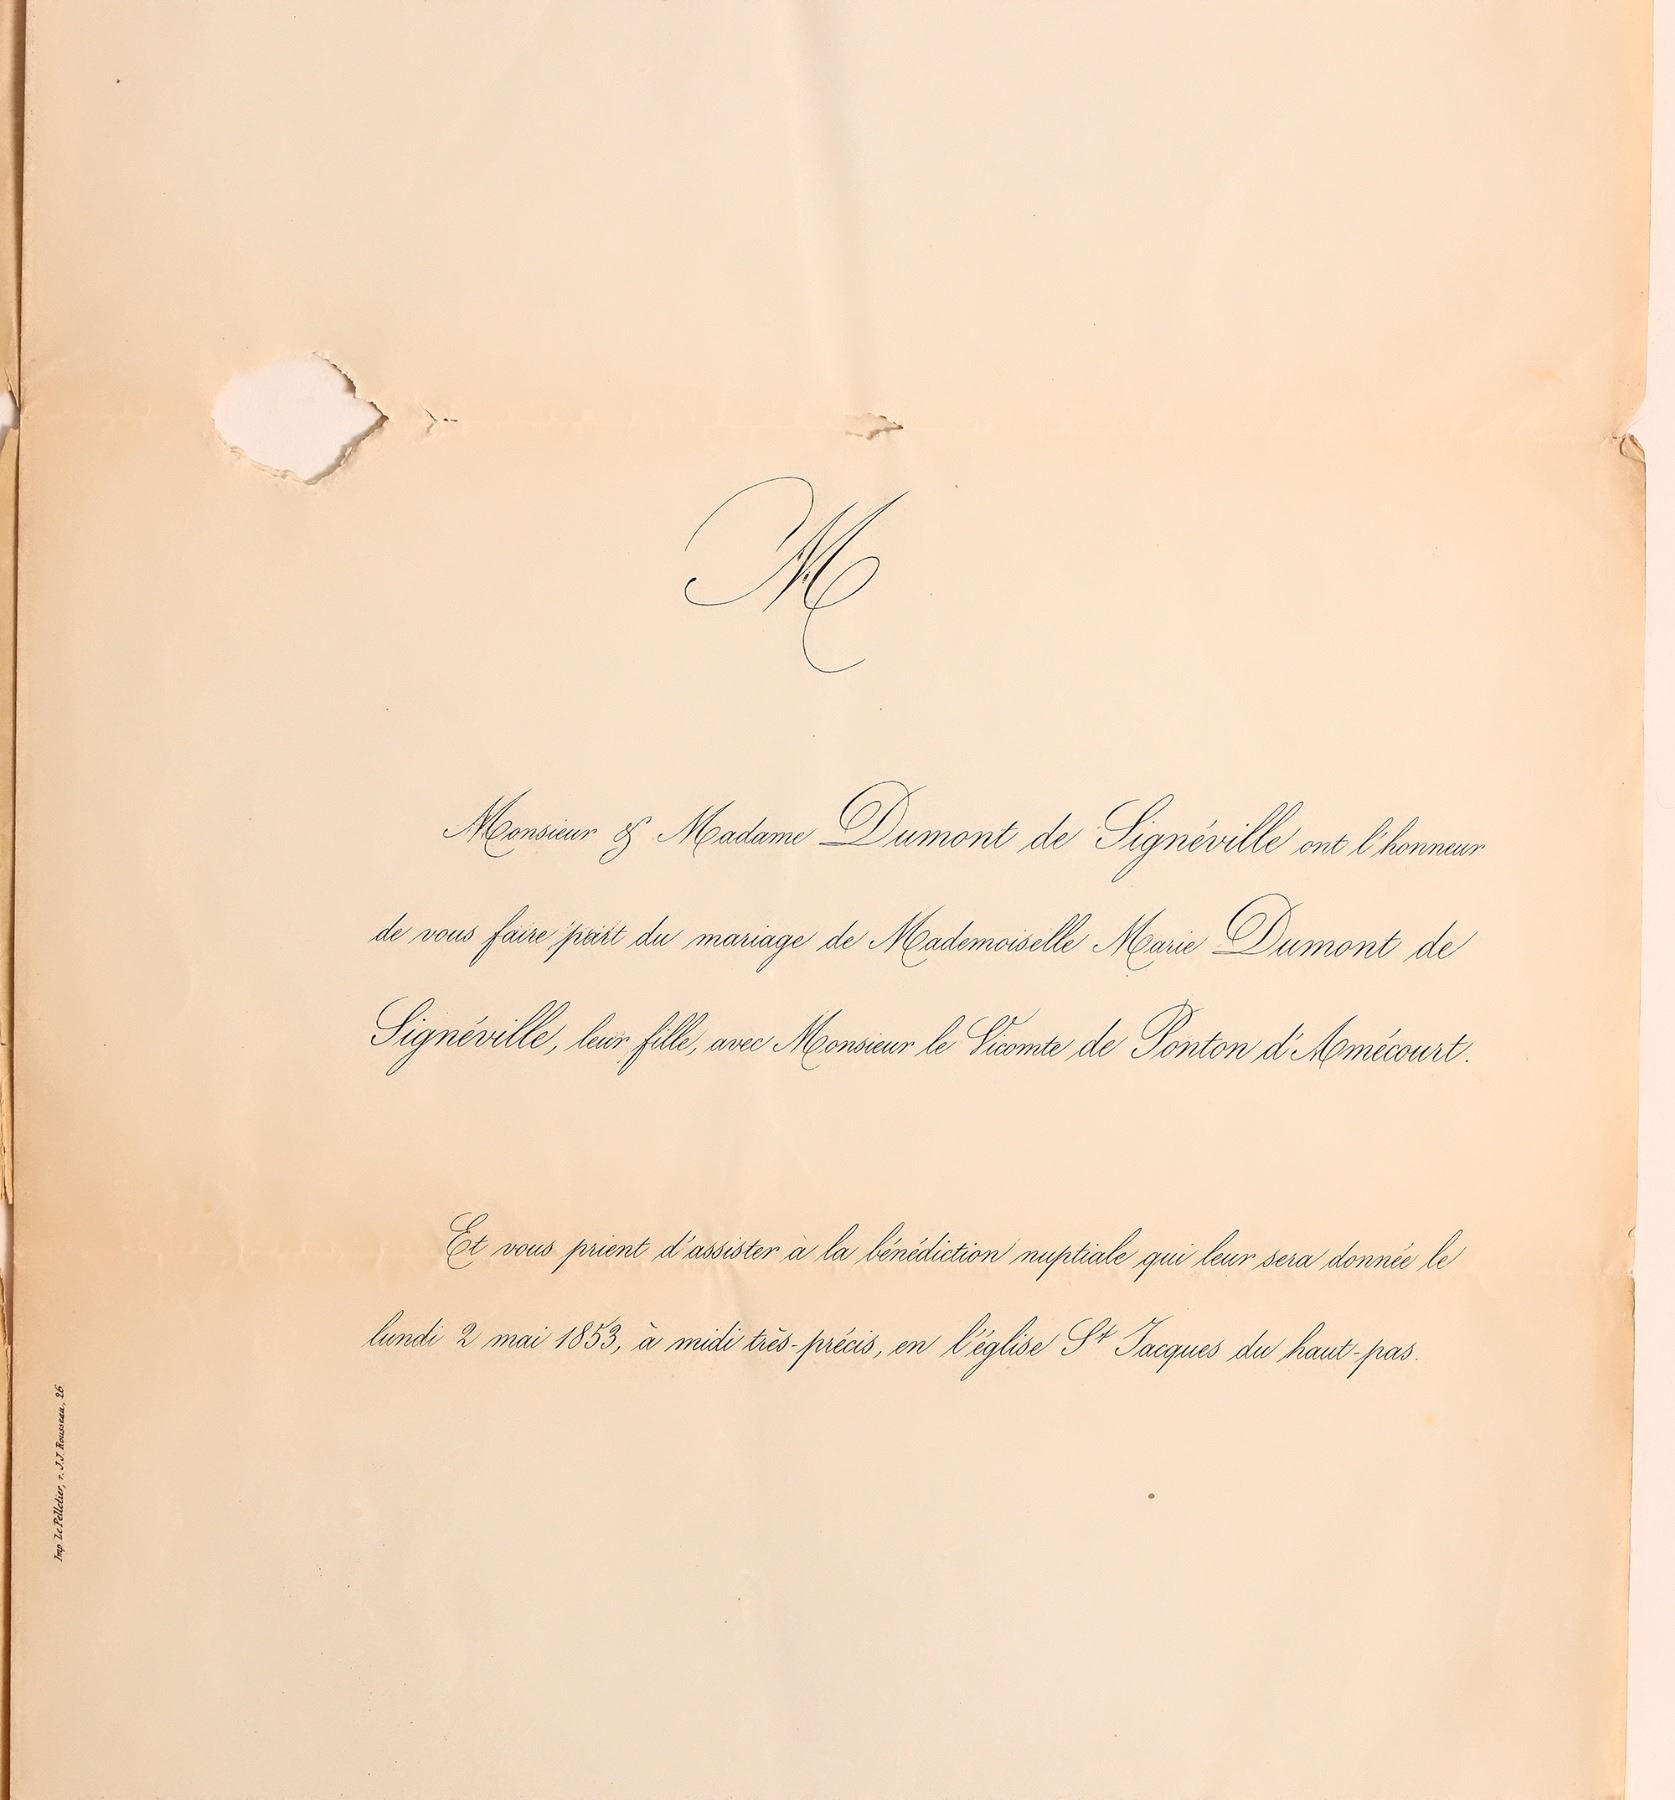 M
Monsieur & Madame Dumont de Signéville ont l'honneur
de vous faire part du mariage de Mademoiselle Marie Dumont de
Signéville, leur fille, avec Monsieur le Vicomte de Ponton d'Amécourt.
Et vous prient d'assister à la bénédiction nuptiale qui leur sera donnée le
lundi 2 mai 1853, à midi très-précis, en l'église St Jacques du haut-pas.
Imp. Le Pelletier, r. J.J. Rousseau, 26